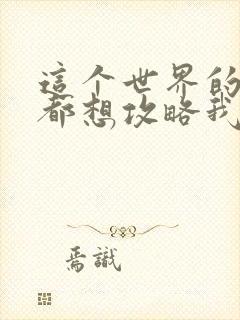 這个世界的
都想攻略我
焉識